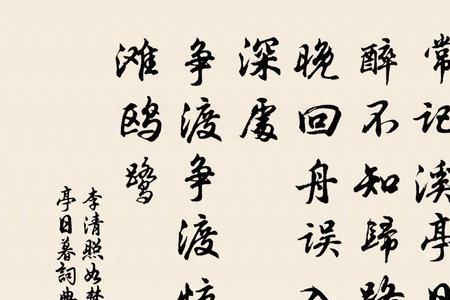 常记溪亭日
醉不知歸路
晚回舟误入
深處
争渡争渡惊
滩鸥鹭
李清照如梦
亭日暮詞典